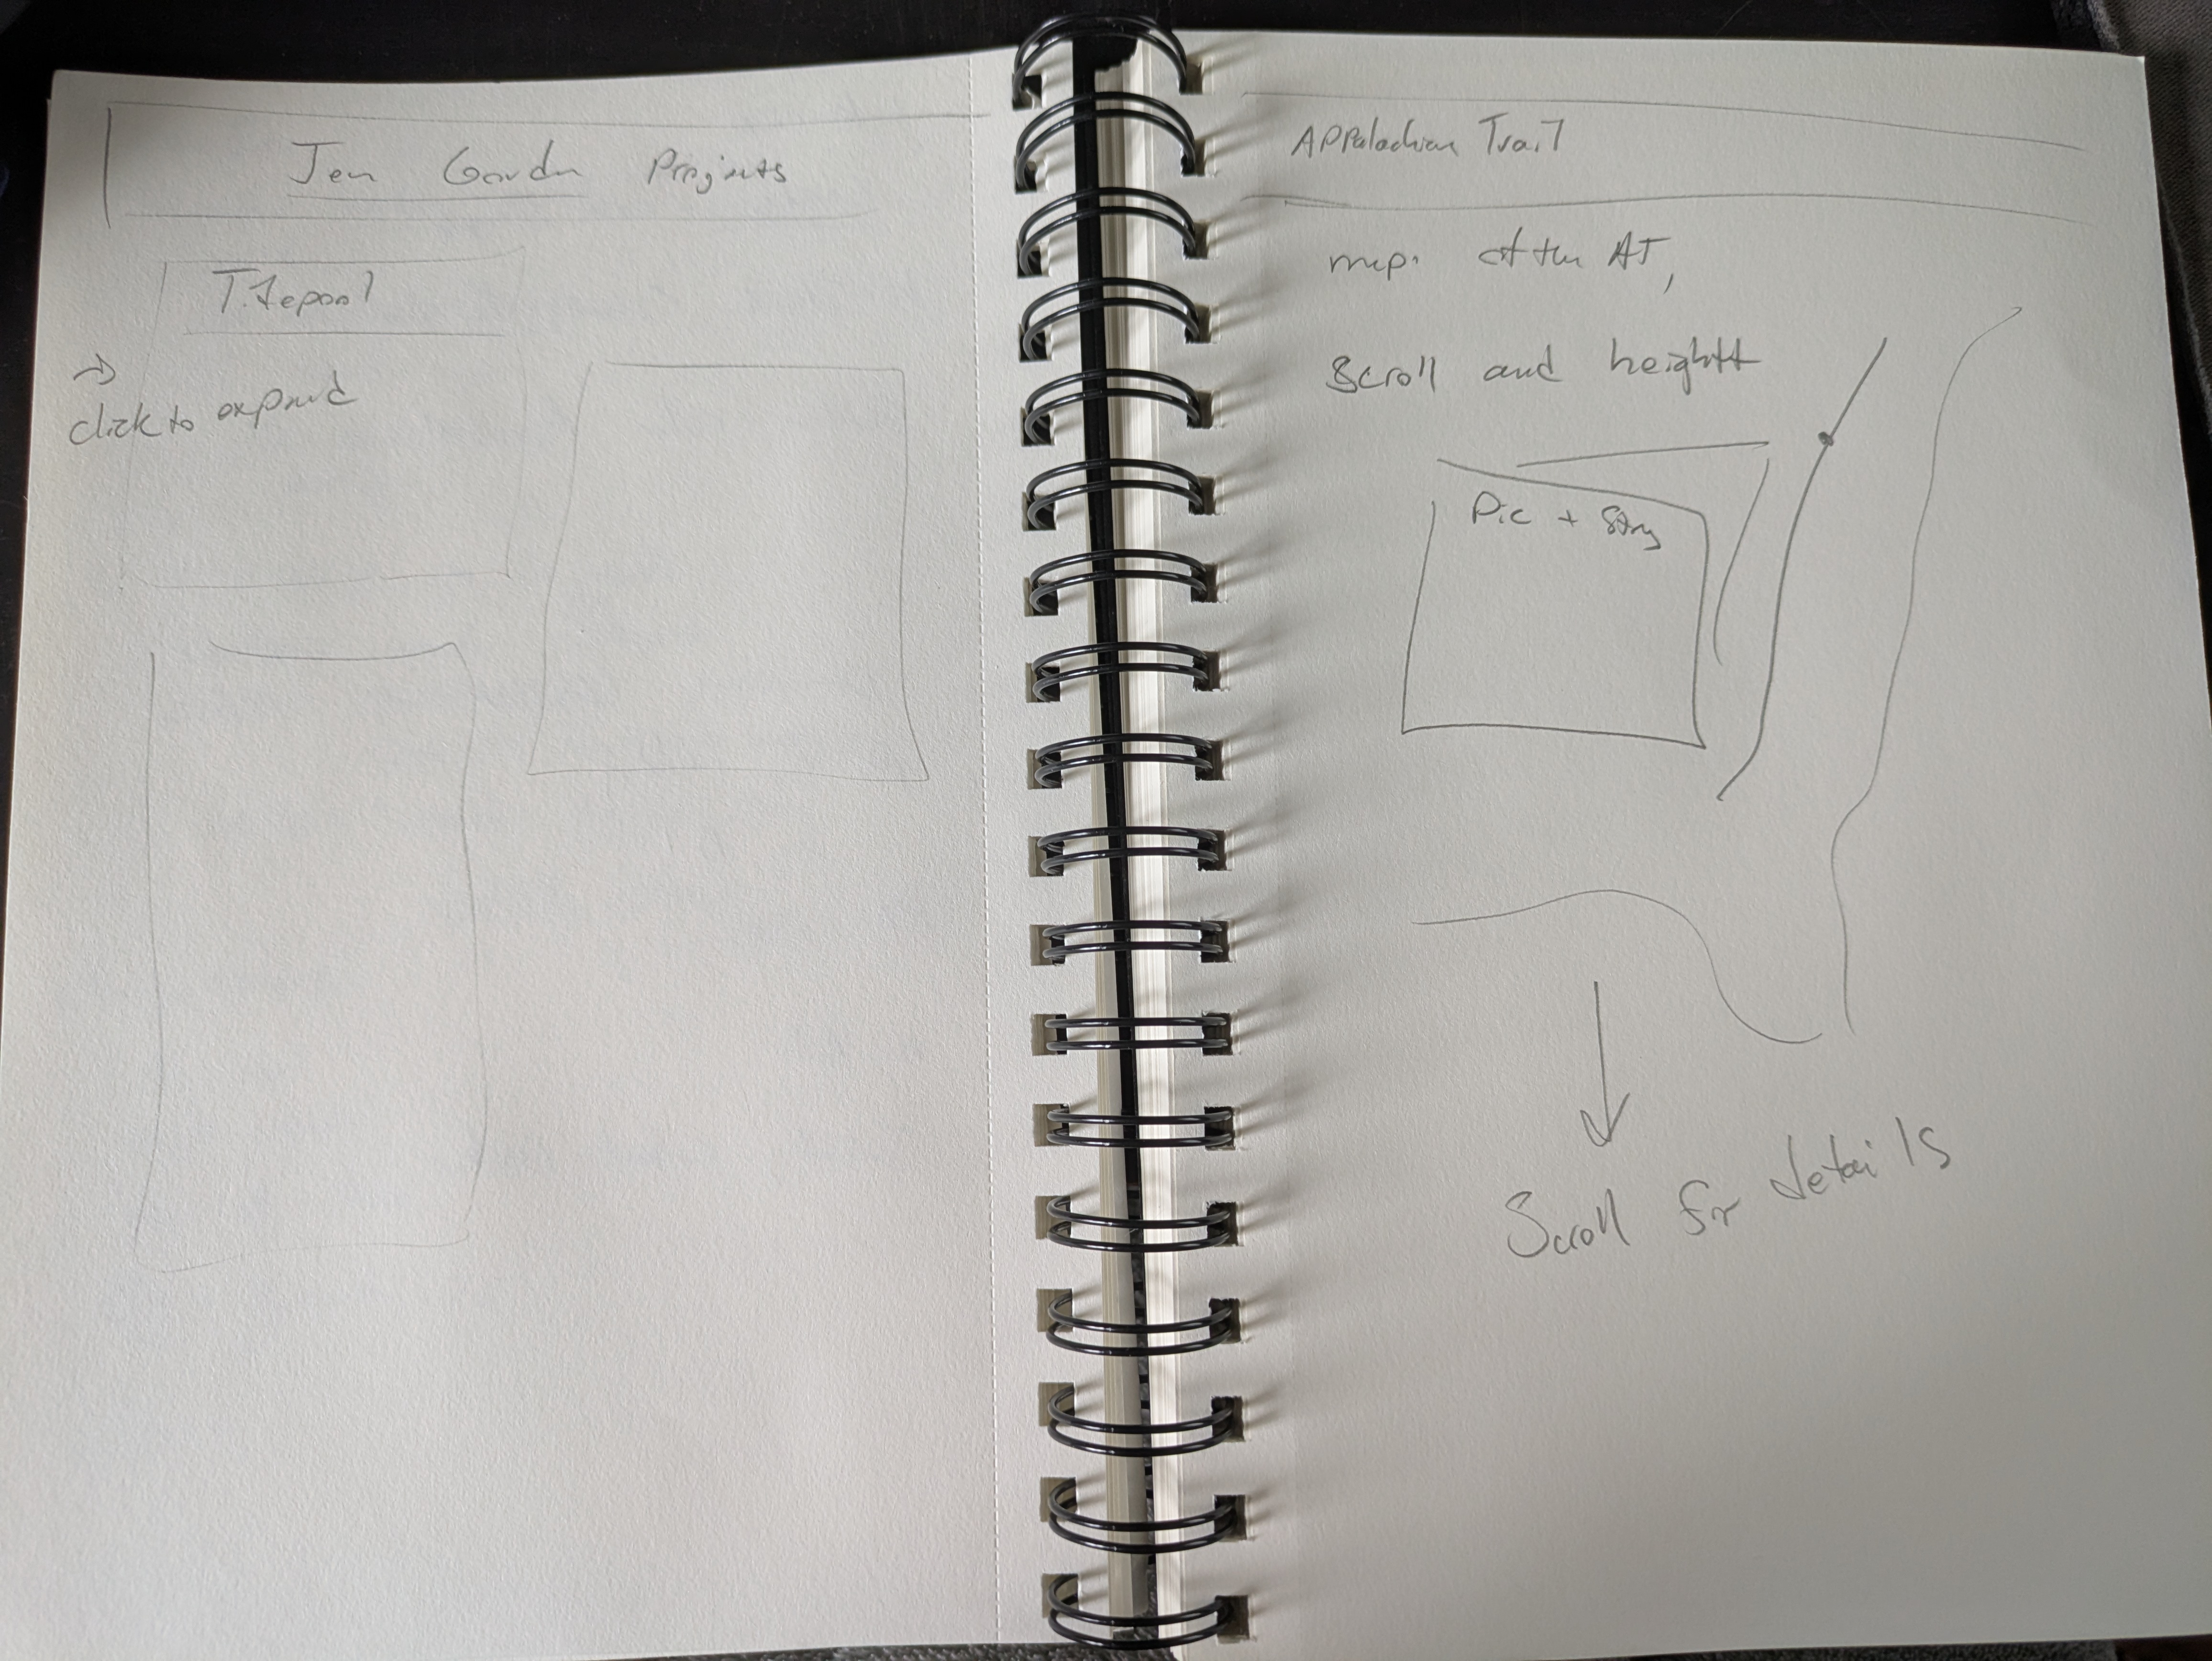 Jen Gordn Projects
Tidepool
click to expand
Appalachian Trail
map of the AT,
Scroll and heightt
Pic + Story
Scroll for details